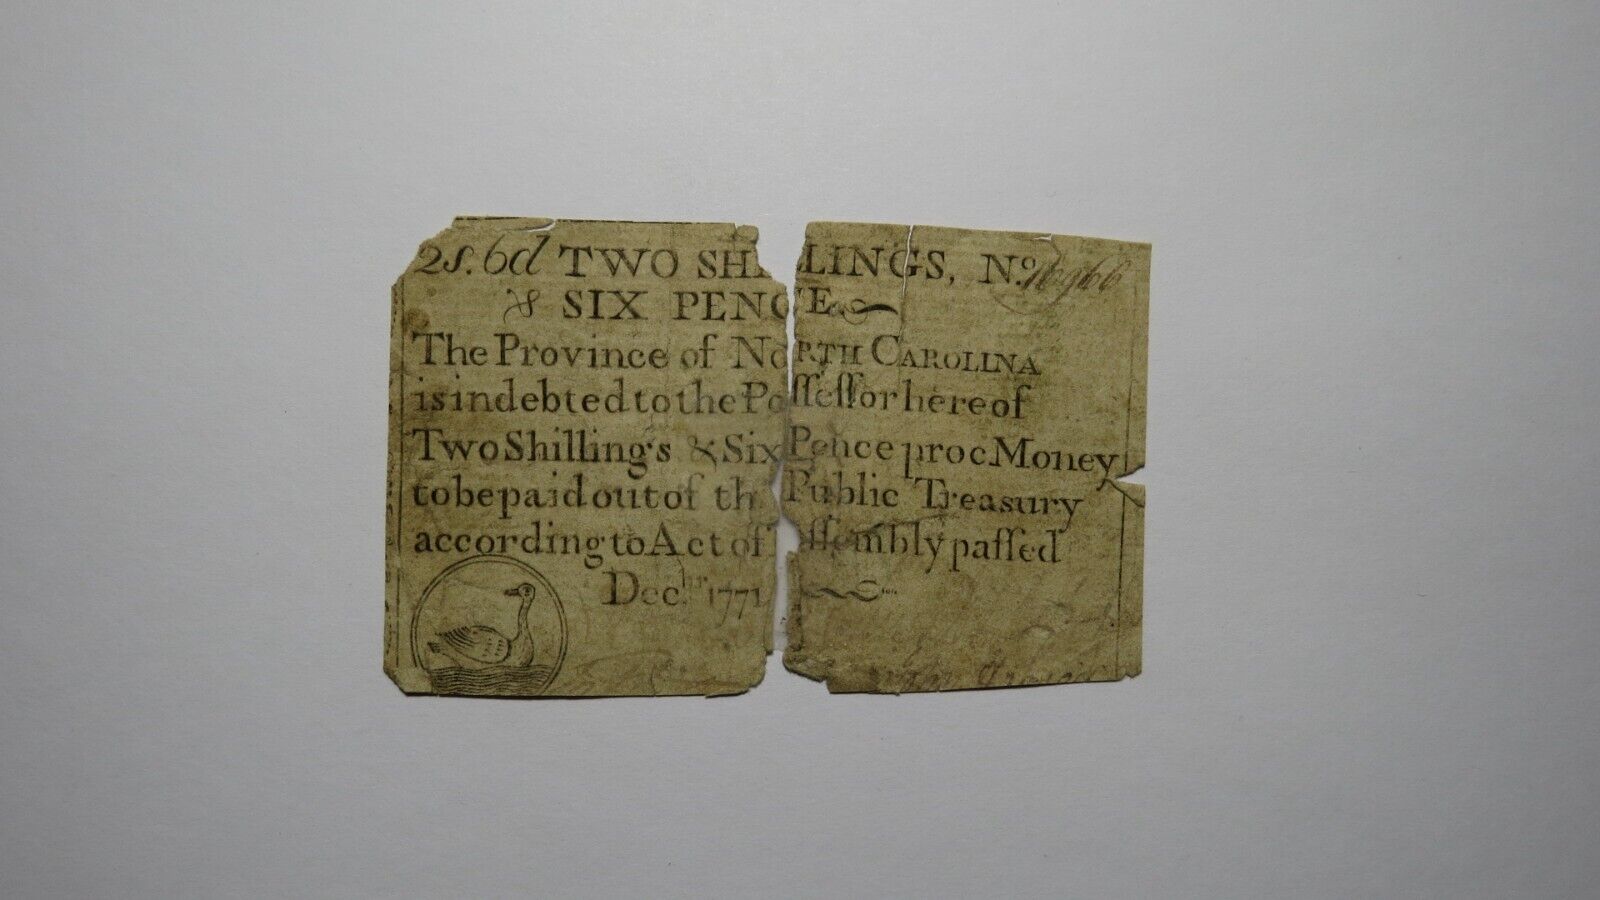 2s.6d TWO SHILLINGS, No.
& SIX PENCE
The Province of NORTH CAROLINA
is indebted to the Poſſeſſor hereof
Two Shillings & Six Pence proc Money
to be paid out of th Public Treasury
according to Act of Aſſembly paſſed
Decbr. 1771